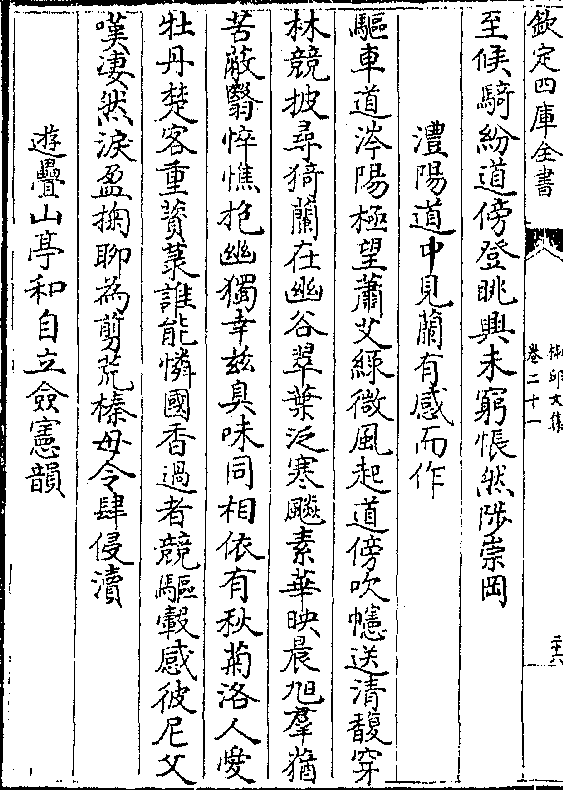 欽定四庫全書
柳邨文集
卷二十一
二十六
至候騎紛道傍登眺興未窮悵然陟崇岡
澧陽道中見蘭有感而作
驅車道涔陽極望蕭艾綠微風起道傍吹幰送清馥穿
林競披尋猗蘭在幽谷翠葉泛寒飇素華映晨旭羣猶
苦蔽翳悴憔抱幽獨幸兹臭味同相依有秋菊洛人愛
牡丹楚客重薋菉誰能憐國香過者競驅轂感彼尼父
嘆凄然淚盈掬聊為剪荒榛毋令肆侵瀆
遊疊山亭和自立僉憲韻